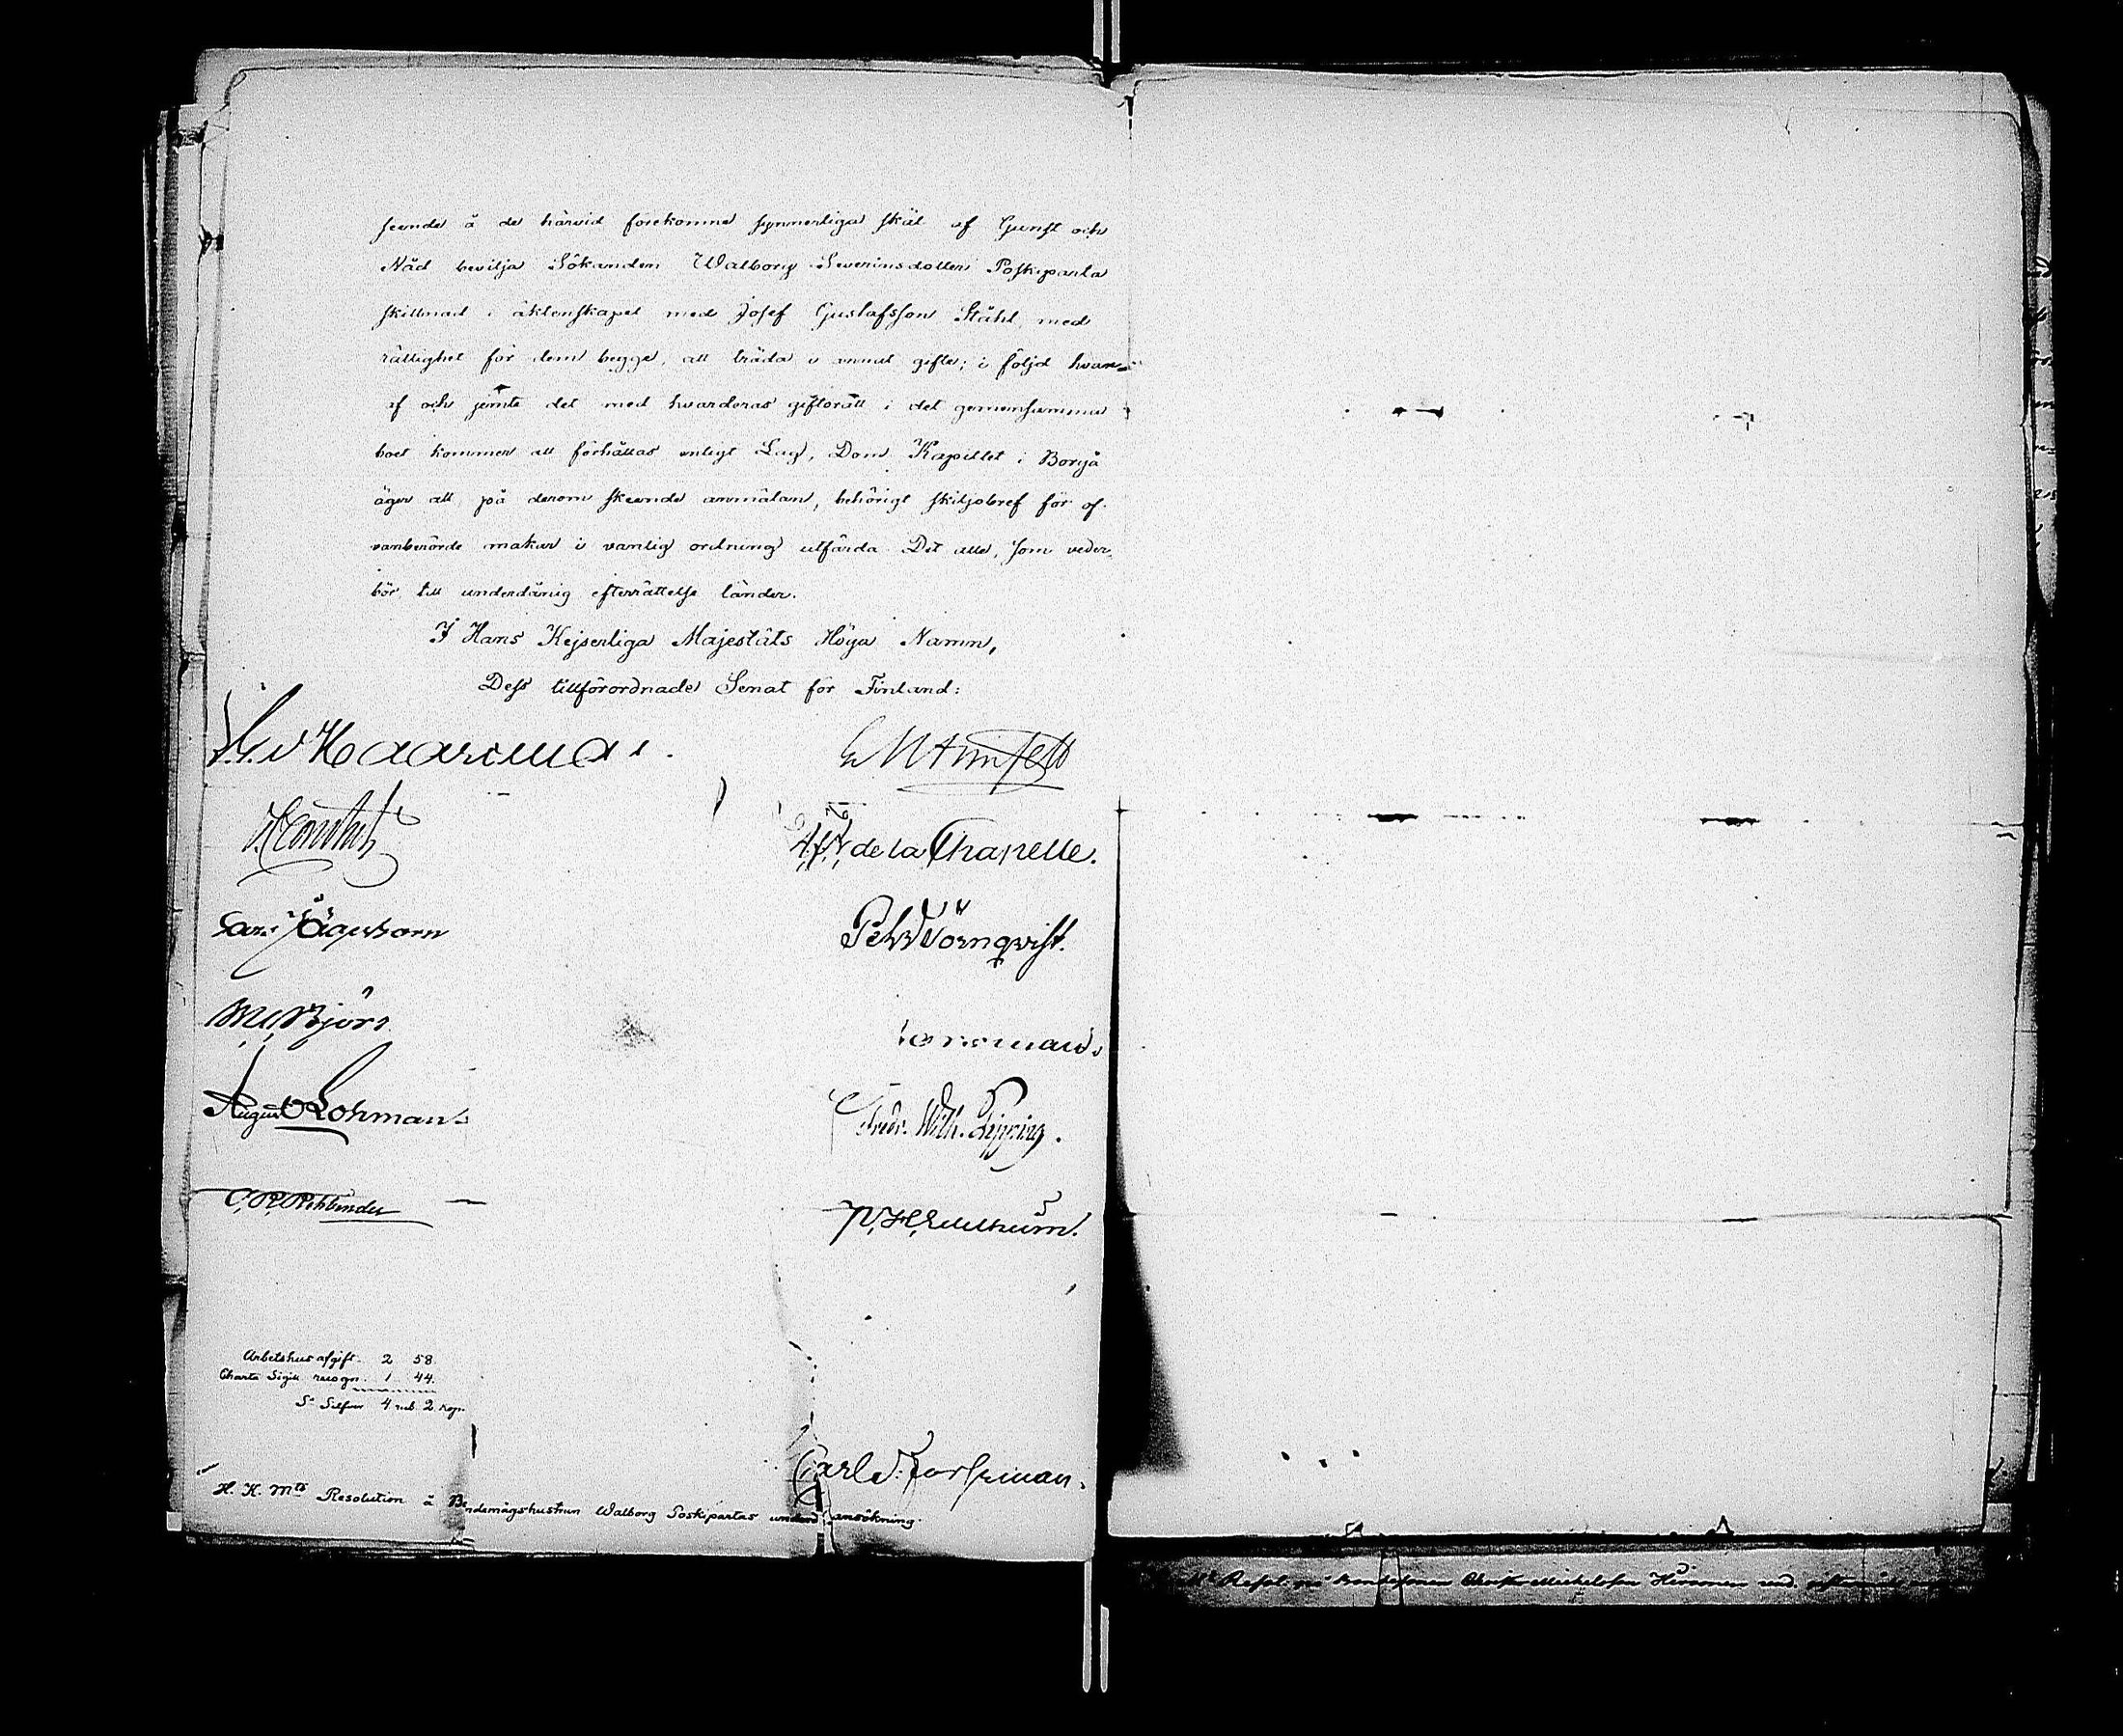 seende å de härvid förekomne synnerliga skäl af Gunst och
Nåd bevilja Sökanden Walborg Severinsdotter Poskiparta
skillnad i äktenskapet med Josef Gustafsson Ståhl, med
rättighet för dem begge, att träda i annat gifte; i följd hvar-
af och jemte det med hvarderas giftorätt i det gemensamma
boet kommer att förhållas enligt Lag, Dom Kapitlet i Borgå
äger att, på derom skeende anmälan, behörigt skiljobref för of-
vanberörde makar i vanlig ordning utfärda. Det alle, som veder-
bör till underdånig efterrättelse länder.
I Hans Kejserliga Majestäts Höga Namn,
Dess tillförordnade Senat för Finland:
de la Chapelle.
Carl Jägerhorn
Petr Törnqvist.
Björ
August Lohman.
Fredr. Wilh. Pipping.
C. R. Rehbinder
Arbetshus afgift. 2 58.
Charta Sigill. recogn. 1 44.
Sa Silfver 4 rub. 2 kop.
Carl Forsman.
H. K. Mts Resolution å Bondemågshustrun Walborg Poskipartas underd. ansökning.
Resol. på Bondesonen Christer Michelsson Hirvonen und.